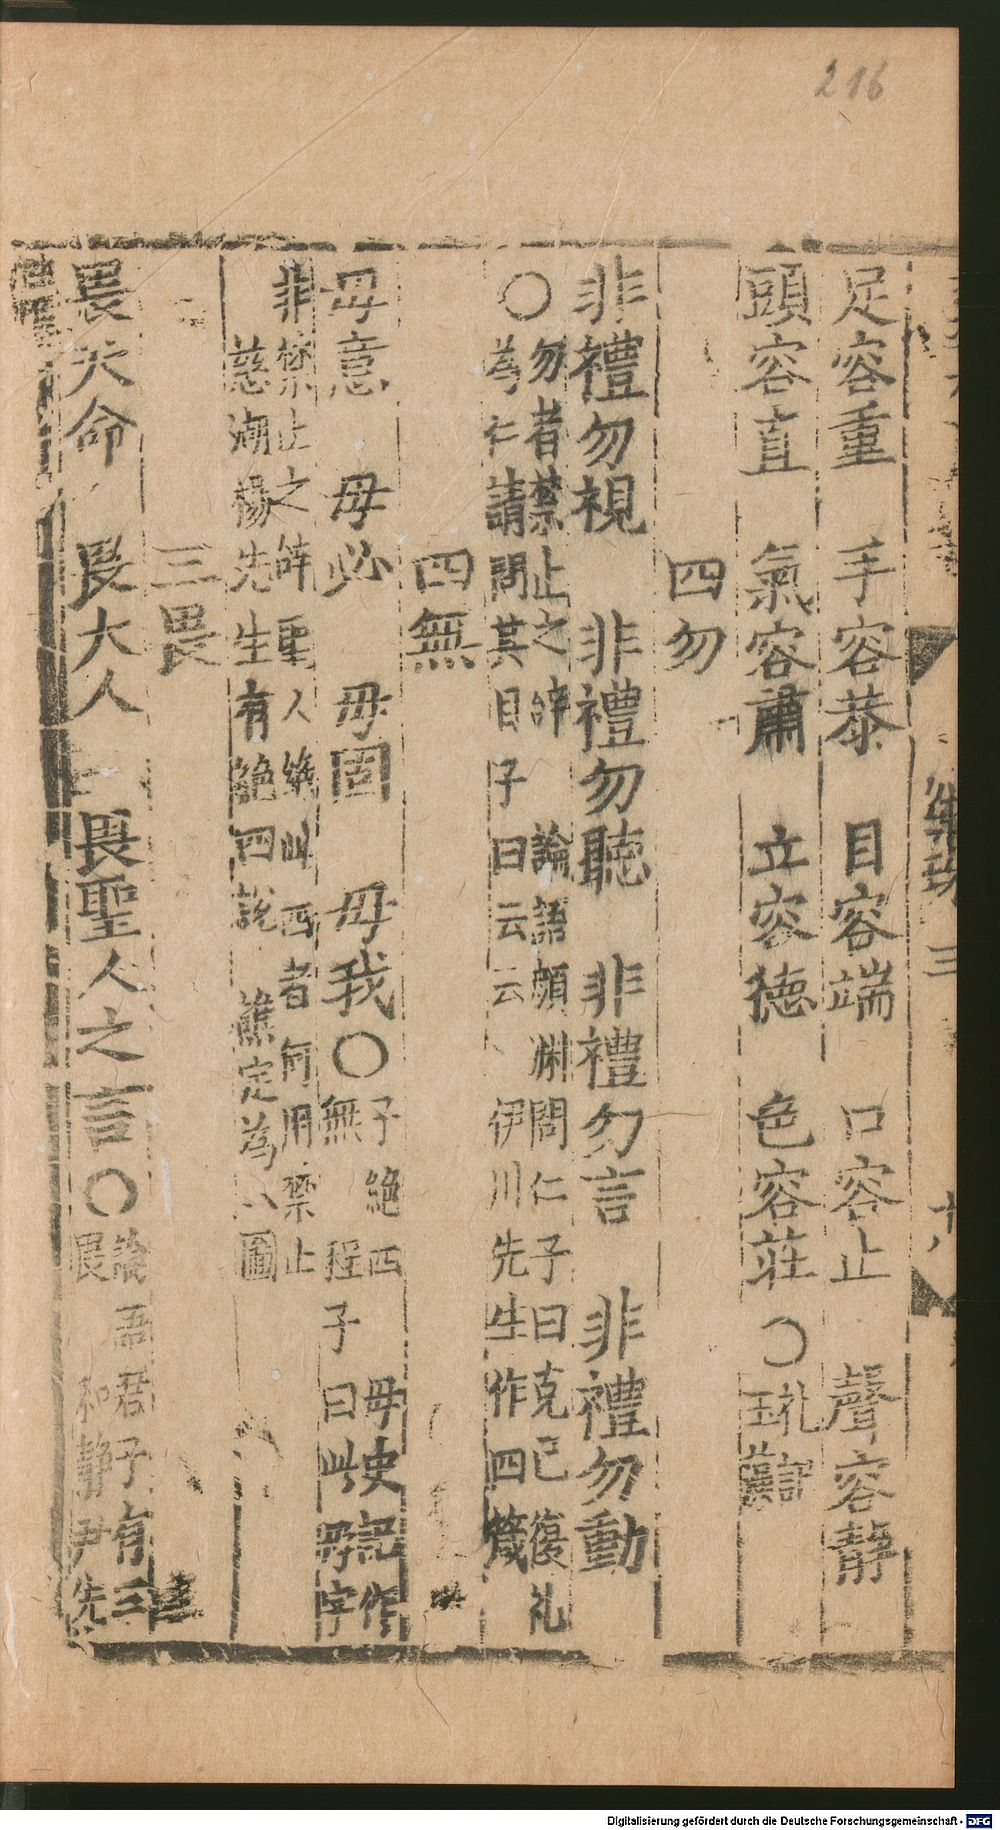 216
足容重　手容恭　目容端　口容止　聲容靜
頭容直　氣容肅　立容徳　色容莊〇礼記
玉藻
四勿
非禮勿視　非禮勿聽　非禮勿言　非禮勿動
〇勿者禁止之辞　論語顔渊問仁子曰克己復礼
為仁請問其目子曰云云　伊川先生作四箴
四無
毋意　毋必　毋固　毋我〇子絶四　毋史記作
無　程子曰此毋字
非禁止之辞聖人絶此四者何用禁止
慈湖楊先生有絶四說　譙定為　圖
三畏
畏天命　畏大人　畏聖人之言〇論語君子有三
畏　和靜尹先
三
十八
Digitalisierung gefördert durch die Deutsche Forschungsgemeinschaft - DFG